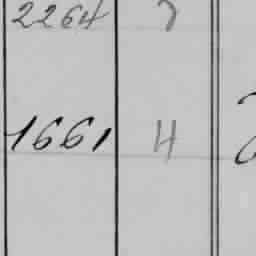 2264
1661 H